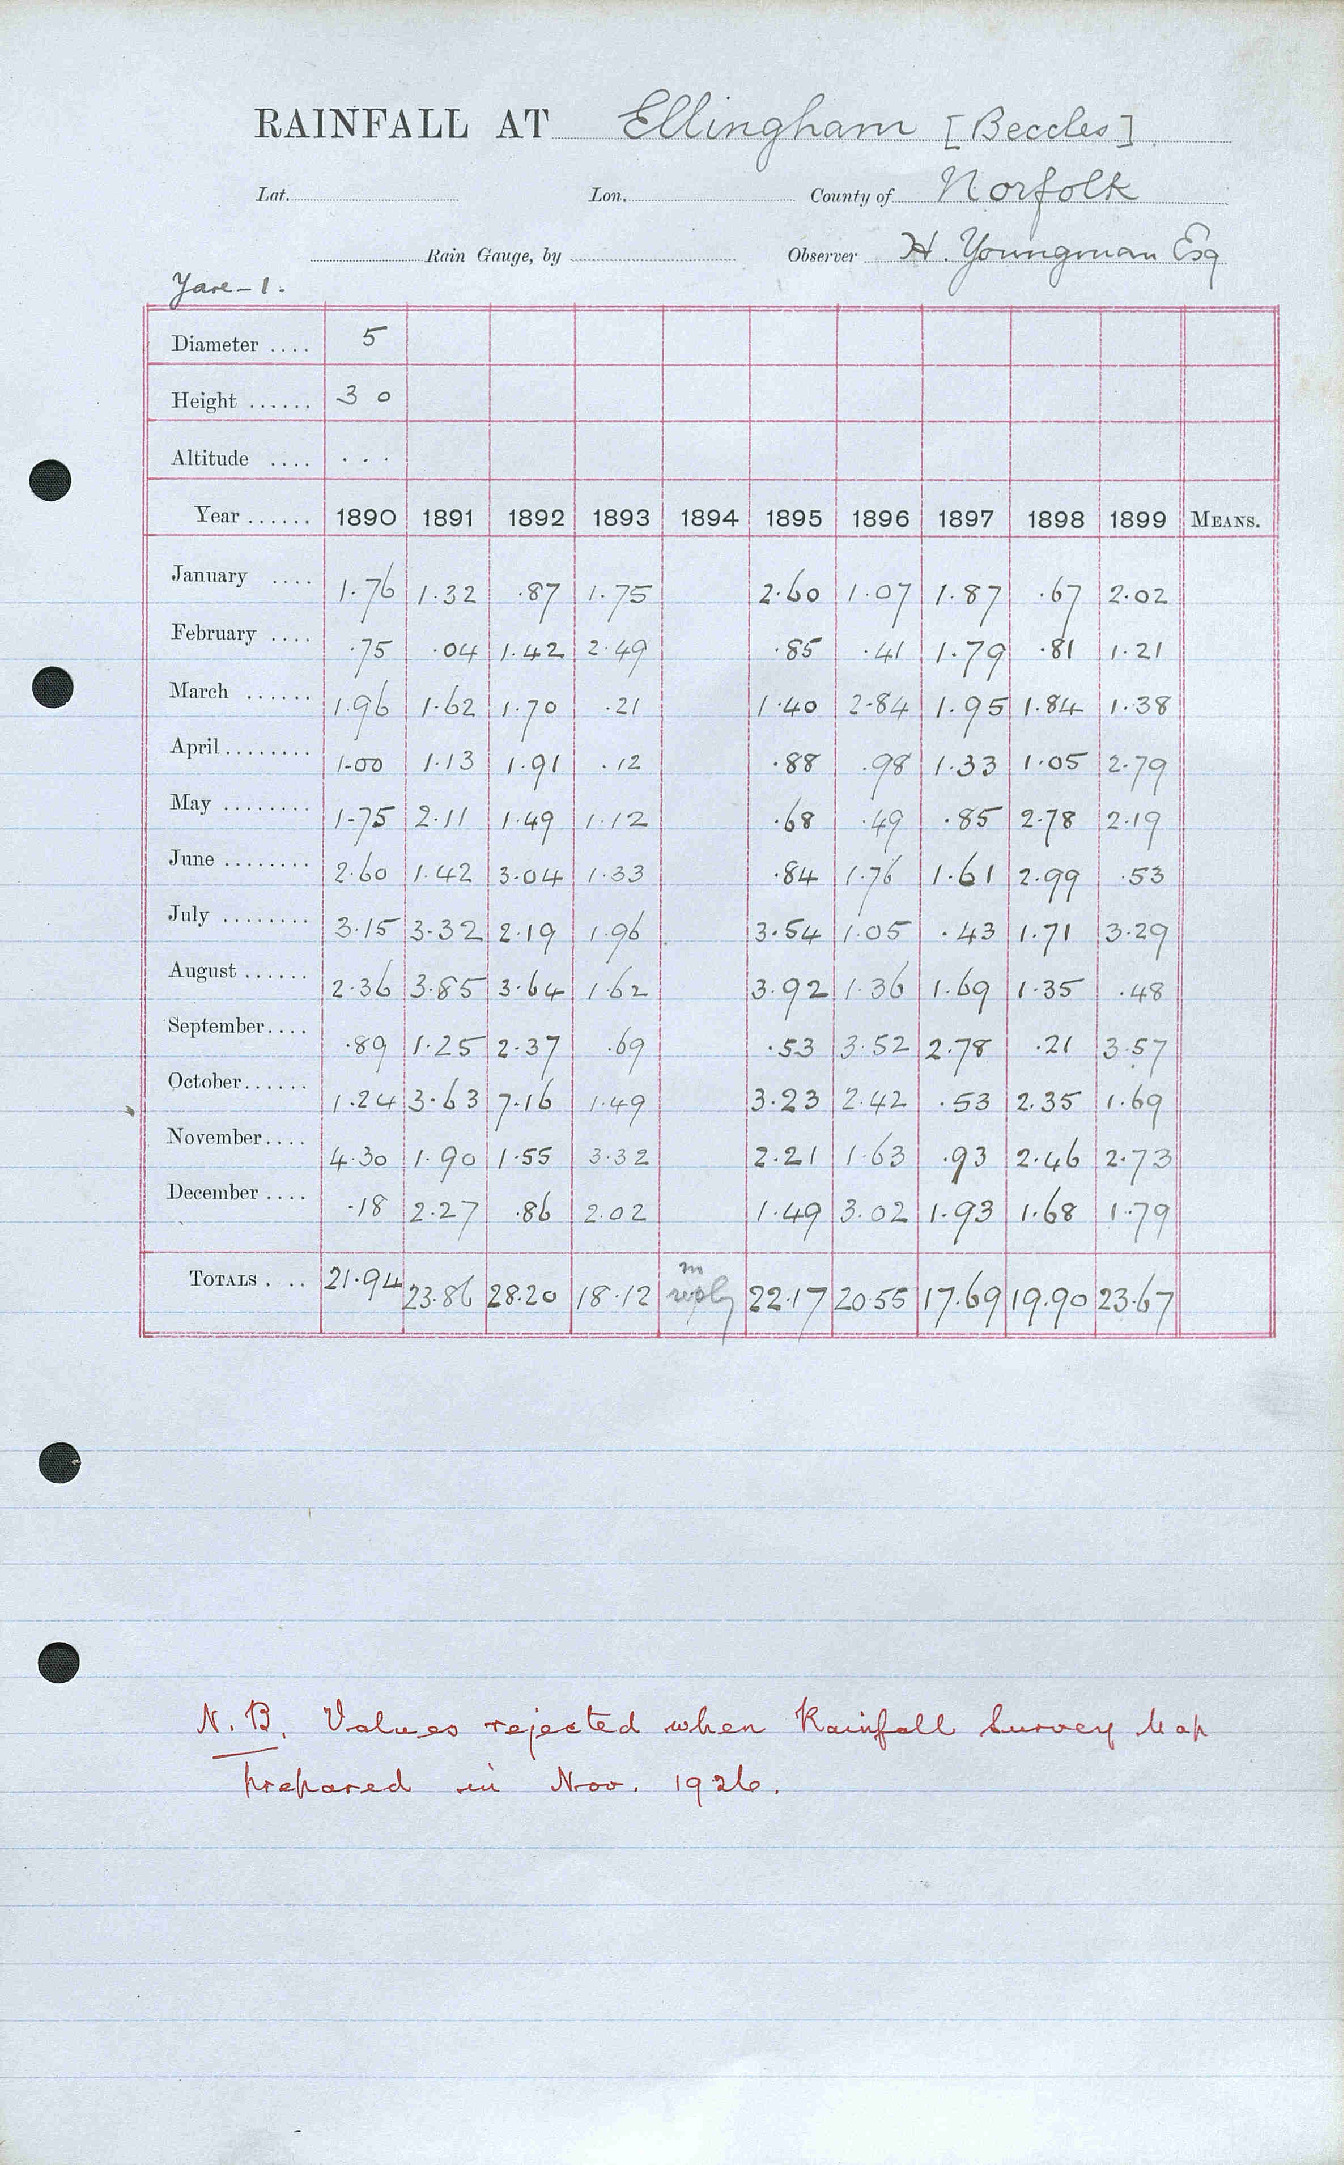 RAINFALL AT Ellingham [Beccles]
Lat. Lon. County of Norfolk
Rain Gauge, by Observer H. Youngman Esq
Yare-1.
Diameter .... 5
Height ...... 3 0
Altitude .... ...
Year ...... 1890 1891 1892 1893 1894 1895 1896 1897 1898 1899 MEANS.
January .... 1.76 1.32 .87 1.75 2.60 1.07 1.87 .67 2.02
February .... .75 .04 1.42 2.49 .85 .41 1.79 .81 1.21
March ...... 1.96 1.62 1.70 .21 1.40 2.84 1.95 1.84 1.38
April ........ 1.00 1.13 1.91 .12 .88 .98 1.33 1.05 2.79
May ........ 1.75 2.11 1.49 1.12 .68 .49 .85 2.78 2.19
June ........ 2.60 1.42 3.04 1.33 .84 1.76 1.61 2.99 .53
July ........ 3.15 3.32 2.19 1.96 3.54 1.05 .43 1.71 3.29
August ...... 2.36 3.85 3.64 1.62 3.92 1.36 1.69 1.35 .48
September .... .89 1.25 2.37 .69 .53 3.52 2.78 .21 3.57
October ...... 1.24 3.63 7.16 1.49 3.23 2.42 .53 2.35 1.69
November .... 4.30 1.90 1.55 3.32 2.21 1.63 .93 2.46 2.73
December .... .18 2.27 .86 2.02 1.49 3.02 1.93 1.68 1.79
TOTALS . .. 21.94 23.86 28.20 18.12 no reply 22.17 20.55 17.69 19.90 23.67
N.B. Values rejected when Rainfall Survey Map
prepared in Nov. 1926.